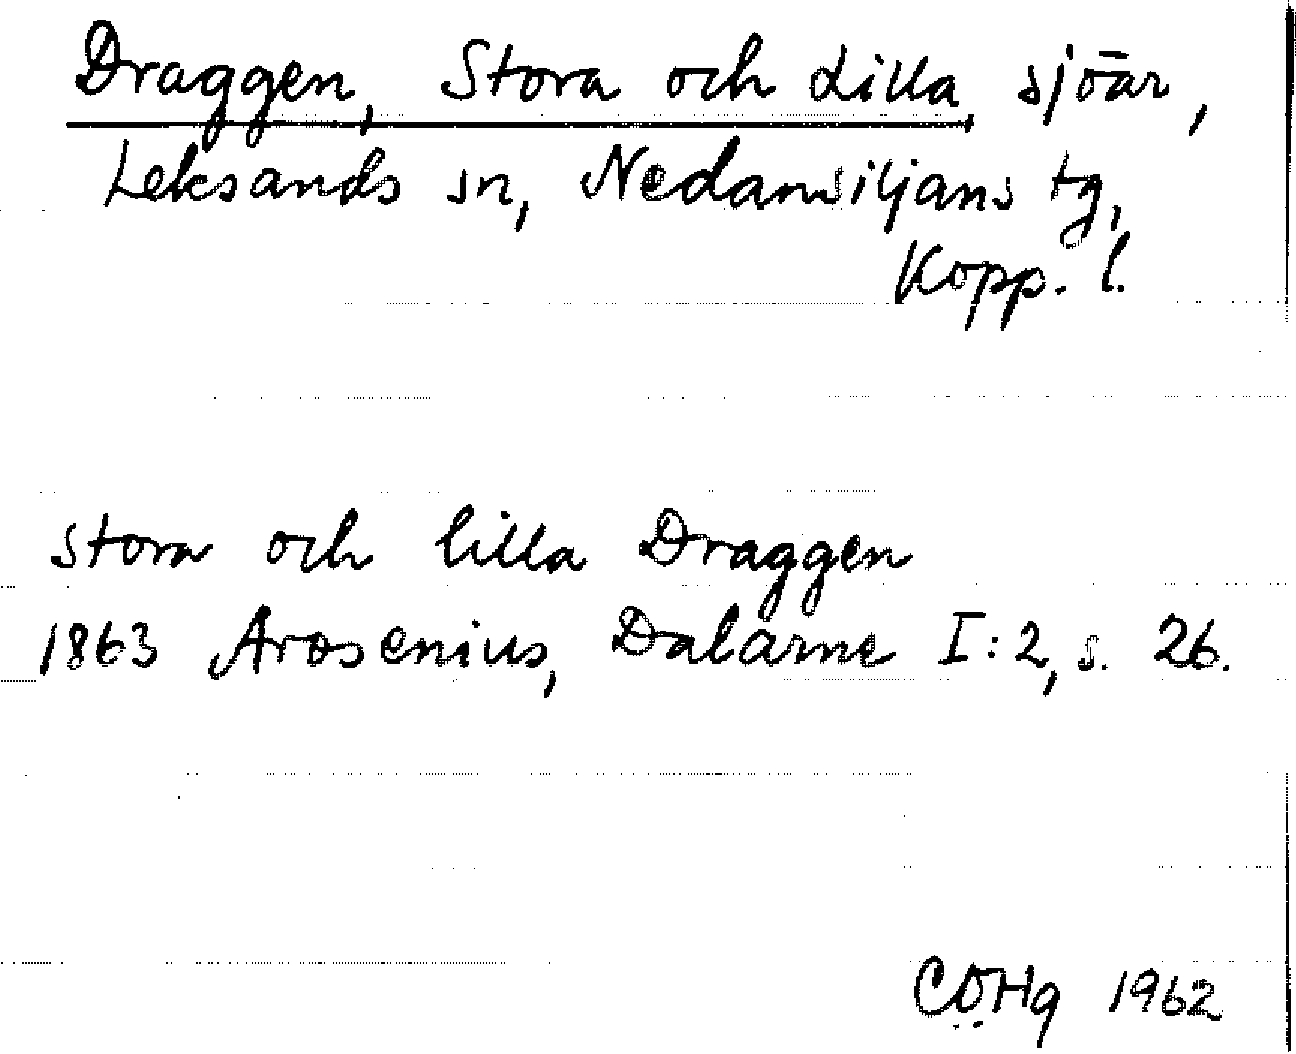 Draggen, Stora och Lilla, sjöar,
Leksands sn, Nedansiljans tg,
Kopp. l.
Stora och lilla Draggen
1863 Arosenius, Dalarne I:2, s. 26.
CÖHg 1962